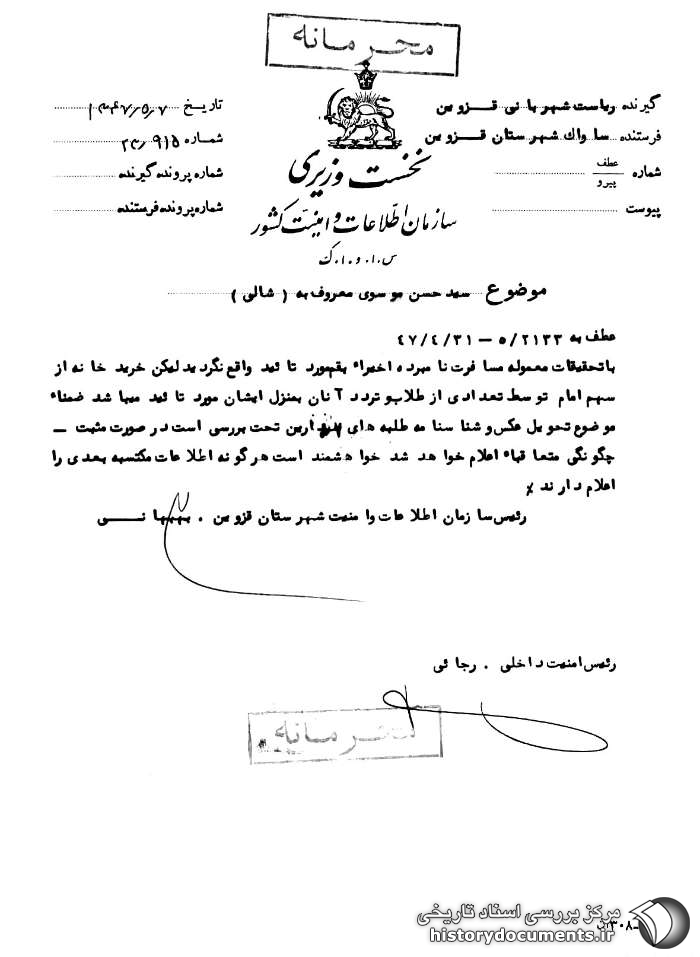 محرمانه
گیرنده ریاست شهربانی قزوین
تاریخ ۱۳۴۷/۵/۷
فرستنده ساواک شهرستان قزوین
شماره ۲۴/۹۱۵
شماره عطف پیرو
شماره پرونده گیرنده
پیوست
شماره پرونده فرستنده
نخست وزیری
سازمان اطلاعات و امنیت کشور
س.ا.و.ا.ک
موضوع سید حسن موسوی معروف به ( شالی )
عطف به ۵/۲۱۳۳ – ۴۷/۴/۳۱
باتحقیقات معموله مسافرت نامبرده اخیراء بقم مورد تائید واقع نگردید لیکن خرید خانه از
سهم امام توسط تعدادی از طلاب و تردد آنان بمنزل ایشان مورد تائید میباشد ضمناء
موضوع تحویل عکس و شناسنامه طلبه های تحت بررسی است در صورت مثبت –
چگونگی متعاقباء اعلام خواهد شد خواهشمند است هرگونه اطلاعات مکتسبه بعدی را
اعلام دارند ٪
رئیس سازمان اطلاعات وامنیت شهرستان قزوین . بهبهانی
رئیس امنیت داخلی . رجائی
محرمانه
مرکز بررسی اسناد تاریخی
historydocuments.ir